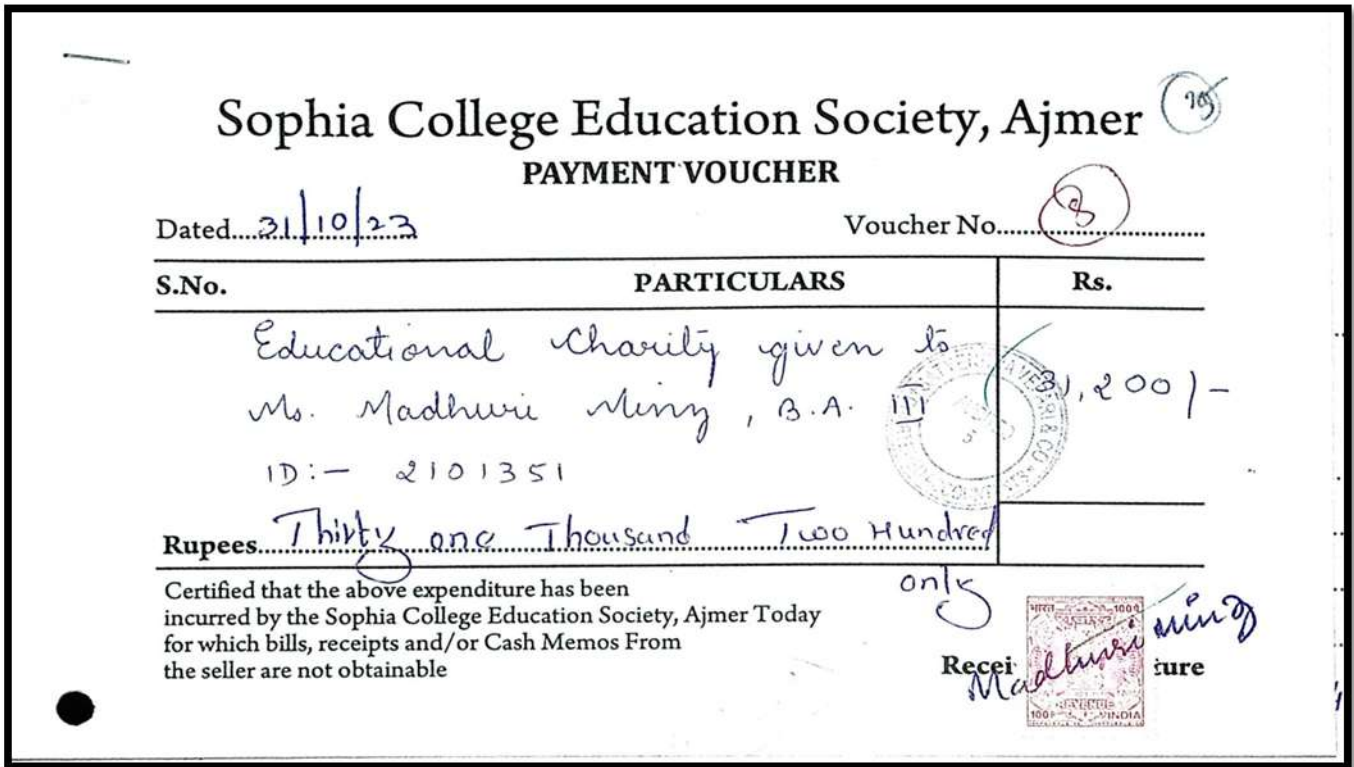 Sophia College Education Society, Ajmer
PAYMENT VOUCHER
Dated....31/10/23
Voucher No.....8
S.No. PARTICULARS Rs.
Educational Charity given to
Ms. Madhuri Minz, B.A. III
31,200/-
ID:- 2101351
Rupees...Thirty one Thousand Two Hundred
only
Certified that the above expenditure has been
incurred by the Sophia College Education Society, Ajmer Today
for which bills, receipts and/or Cash Memos From
the seller are not obtainable
Recei ture
Madhuri Minz
भारत 100
REVENUE
100 INDIA